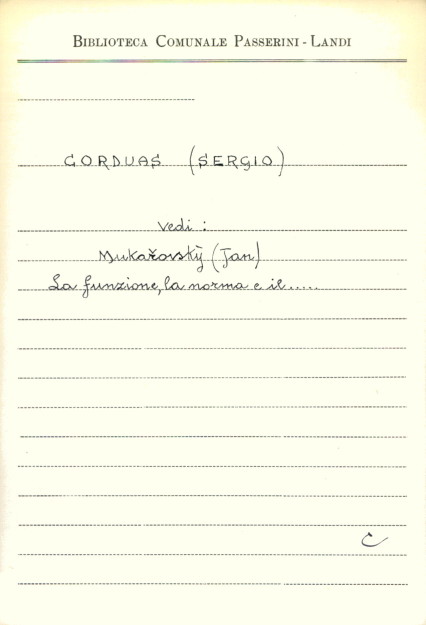 BIBLIOTECA COMUNALE PASSERINI - LANDI
CORDUAS (SERGIO)
Vedi :
Mukařovský (Jan)
La funzione, la norma e il .....
C